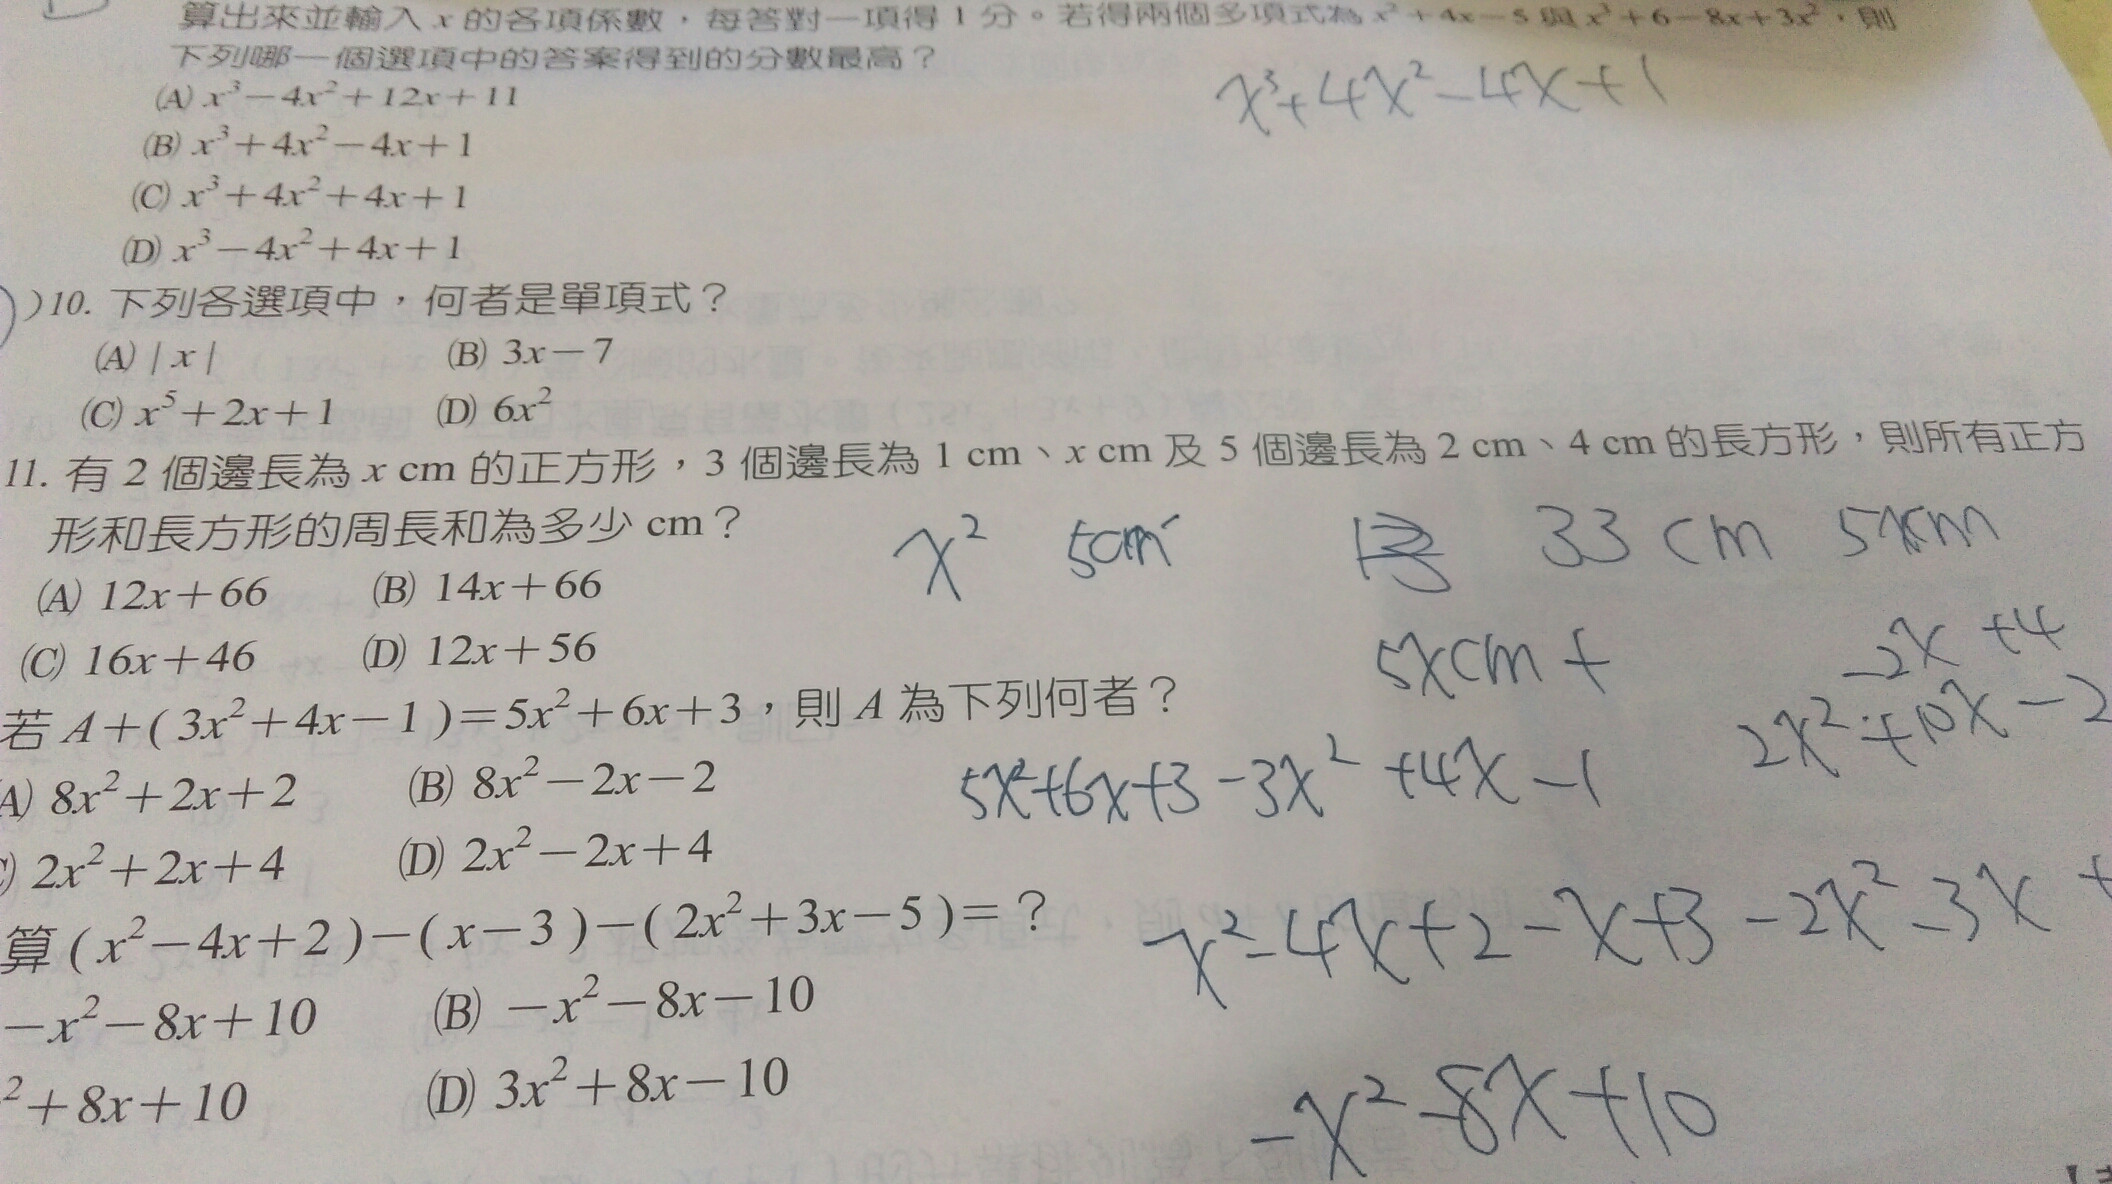 算出來並輸入 x 的各項係數，每答對一項得 1 分。若得兩個多項式為 x²+4x−5 與 x³+6−8x+3x²，則
下列哪一個選項中的答案得到的分數最高？
(A) x³−4x²+12x+11
x³+4x²−4x+1
(B) x³+4x²−4x+1
(C) x³+4x²+4x+1
(D) x³−4x²+4x+1
)10. 下列各選項中，何者是單項式？
(A) | x | (B) 3x−7
(C) x⁵+2x+1 (D) 6x²
11. 有 2 個邊長為 x cm 的正方形，3 個邊長為 1 cm、x cm 及 5 個邊長為 2 cm、4 cm 的長方形，則所有正方
形和長方形的周長和為多少 cm？
x² 5cm 33 cm 5xcm
(A) 12x+66 (B) 14x+66
(C) 16x+46 (D) 12x+56
5xcm +
−2x +4
2x²+10x−2
若 A+( 3x²+4x−1 )=5x²+6x+3，則 A 為下列何者？
5x²+6x+3−3x²+4x−1
A) 8x²+2x+2 (B) 8x²−2x−2
) 2x²+2x+4 (D) 2x²−2x+4
算 ( x²−4x+2 )−( x−3 )−( 2x²+3x−5 )=？
x²−4x+2−x+3−2x²−3x+
−x²−8x+10 (B) −x²−8x−10
²+8x+10 (D) 3x²+8x−10
−x²−8x+10